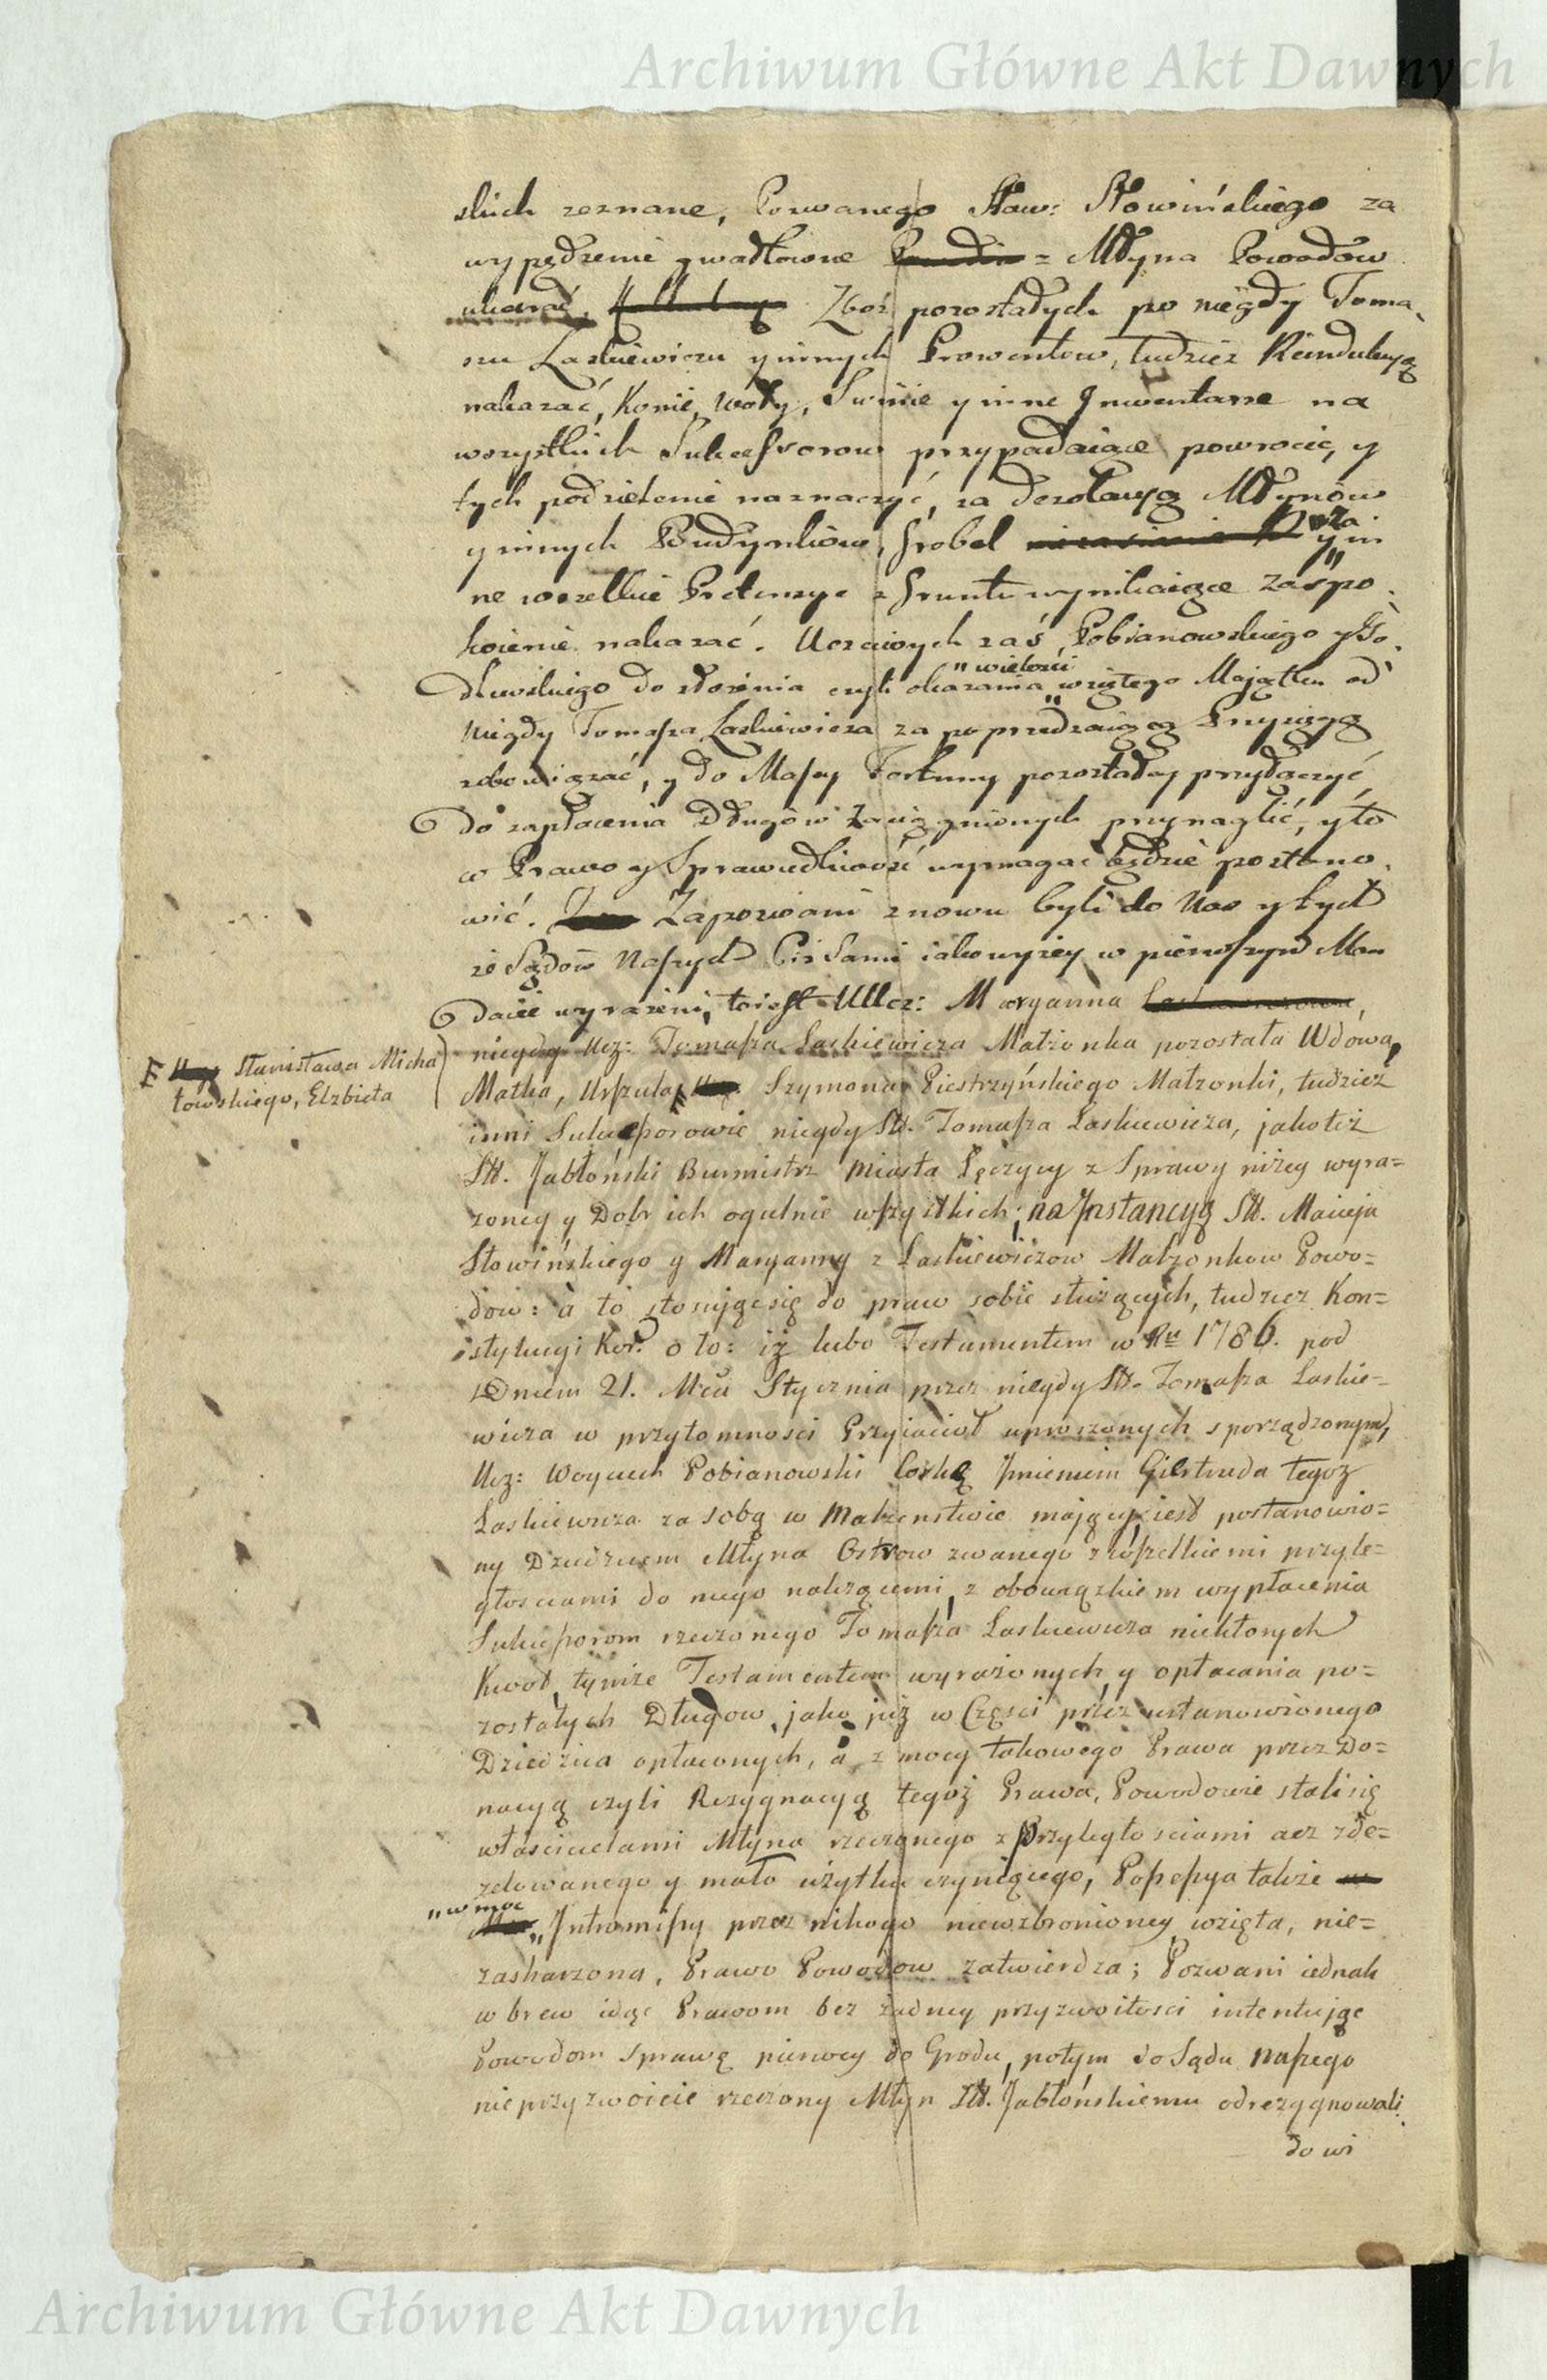 Archiwum Główne Akt Dawnych
skich zeznane, Pozwanego Sław: Słowińskiego za
wypędzenie gwałtowne z Młyna Powodow
ukarać, Zboż pozostałych po niegdy Toma„
szu Laskiewiczu y innych Prowentow, tudzież Kalkulacyą
nakazać, Konie, Woły, Swinie y inne Inwentarze na
wszystkich Sukcessorow przypadaiące powrocić, y
tych podzielenie naznaczyć, za dezolacyą Młynów
y innych Budynków, Grobel za y in
ne wszelkie Pretensye z Gruntu wynikaiące zaspo„
koienie nakazać. Uczciwych zaś Pobianowskiego y Go„
„wielości
dlewskiego do złożenia czyli okazania „ wziętego Majątku od
Niegdy Tomasza Laskiewicza za poprzedzaiącą Przysięgą
zobowiązać, y do Massy Fortuny pozostałey przyłączyć
do zapłacenia Długów zaciągnionych przynaglić, y to
co Prawo y Sprawiedliwość wymagać będzie postano„
wić. Zapozwani znowu byli do Nas y tych
że Sądow Naszych Ciż Sami iako wyżey w pierwszym Man
dacie wyrażeni, toiest Ucz: Maryanna
niegdy Ucz: Tomasza Laskiewicza Małżonka pozostała Wdowa,
F Stanisława Micha
łowskiego, Elżbieta
Matka, Urszula F Szymona Piestrzyńskiego Małżonki, tudzież
inni Sukceszorowie niegdy Sł. Tomasza Laskiewicza, jakoteż
Sł. Jabłoński Burmistrz Miasta Łęczycy z Sprawy niżey wyra=
żoney y Dobr ich ogulnie wszystkich; na Instancyą Sł. Macieja
Słowińskiego y Maryanny z Laskiewiczow Małżonkow Powo=
dow: a to stosując się do praw sobie służących, tudzież Kon=
stytucyi Kor. o to: iż lubo Testamentem w Ru 1786. pod
Dniem 21. Mca Stycznia przez niegdy Sł. Tomasza Laskie=
wicza w przytomności Przyiacioł uproszonych sporządzonym,
Ucz: Woyciech Pobianowski Corkę Imieniem Giertruda tegoż
Laskiewicza za sobą w Małżenstwie mający, iest postanowio=
ny Dziedzicem Młyna Ostrow zwanego z wszelkiemi przyle=
głosciami do niego należącemi, z obowiązkiem wypłacenia
Sukceszorom rzeczonego Tomasza Laskiewicza niektorych
Kwot, tymże Testamentem wyrażonych, y opłacania po=
zostałych Długow, jako już w Części przez ustanowionego
Dziedzica opłaconych, a z mocy takowego Prawa przez Do=
nacyą czyli Rezygnacyą tegoż Prawa, Powodowie stali się
właścicielami Młyna rzeczonego z Przyległosciami acz zde=
zelowanego y mało użytku czyniącego, Possessya także
„w moc
„ Intromissy przez nikogo niewzbronioney wzięta, nie=
zaskarzona, Prawo Powodow zatwierdza; Pozwani iednak
wbrew idąc Prawom bez żadney przyzwoitości intentując
Powodom sprawę pierwey do Grodu, potym do Sądu Naszego
nieprzyzwoicie rzeczony Młyn Sł. Jabłońskiemu odrezygnowali,
do wi
Archiwum Główne Akt Dawnych